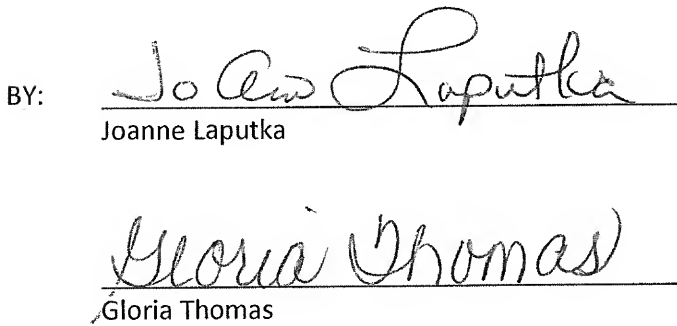 BY: Jo Ann Laputka
Joanne Laputka
Gloria Thomas
Gloria Thomas